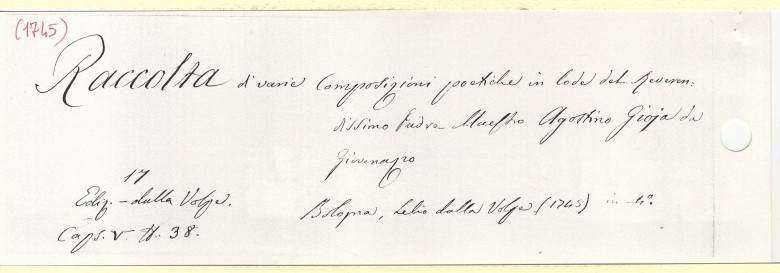 (1745)
Raccolta di varie Composizioni poetiche in lode del Reveren:
dissimo Padre Maestro Agostino Gioja da
Giovenazzo
17
Ediz. dalla Volpe.
Bologna, Lelio dalla Volpe (1745) in 4°.
Caps. V. N. 38.